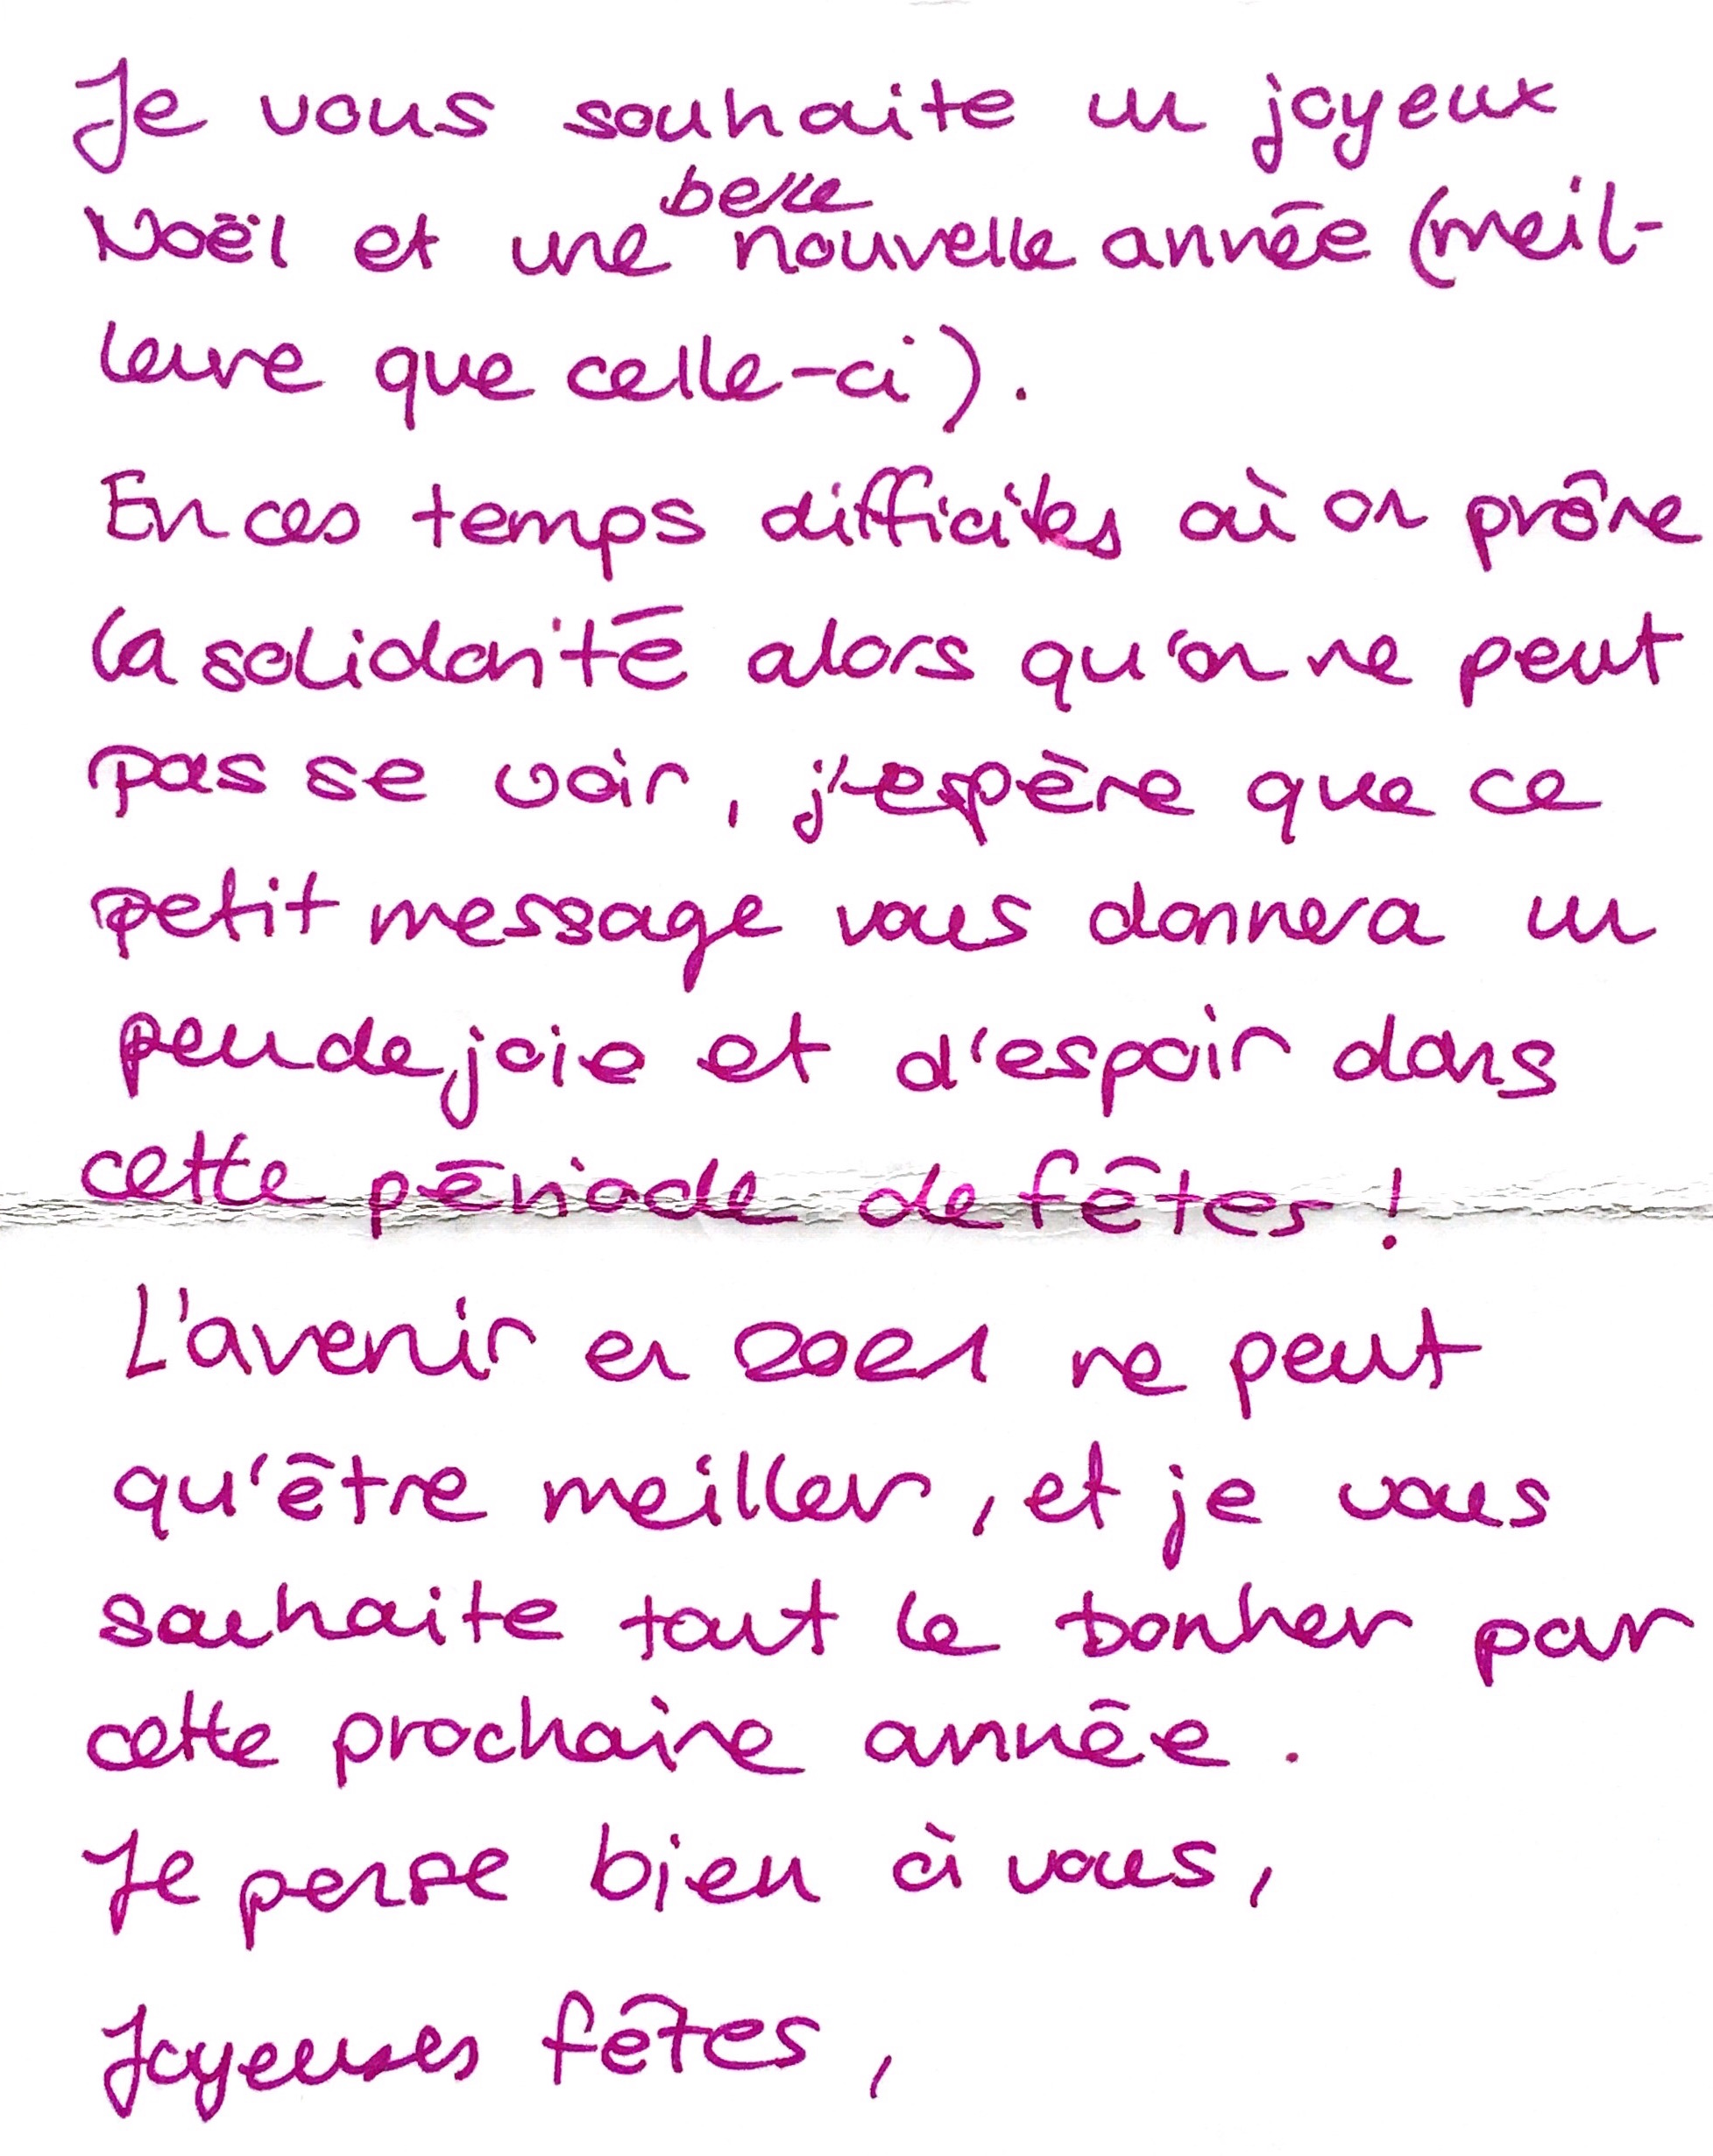 Je vous souhaite un joyeux
belle
Noël et une nouvelle année (meil-
leure que celle-ci).
En ces temps difficiles où on prône
la solidarité alors qu'on ne peut
pas se voir, j'espère que ce
petit message vous donnera un
peu de joie et d'espoir dans
cette période de fêtes !
L'avenir en 2021 ne peut
qu'être meilleur, et je vous
souhaite tout le bonheur pour
cette prochaine année.
Je pense bien à vous,
Joyeuses fêtes,